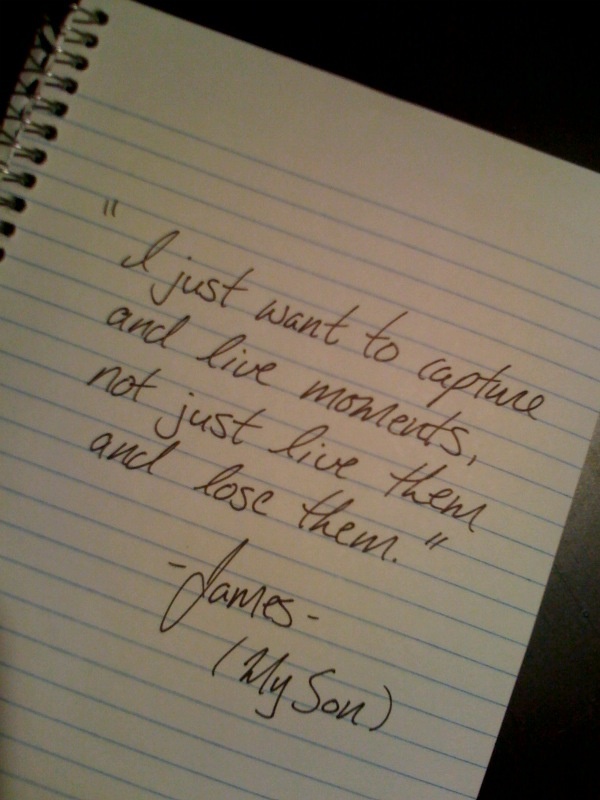 "
I just want to capture
and live moments,
not just live them
and lose them."
-James-
(My Son)